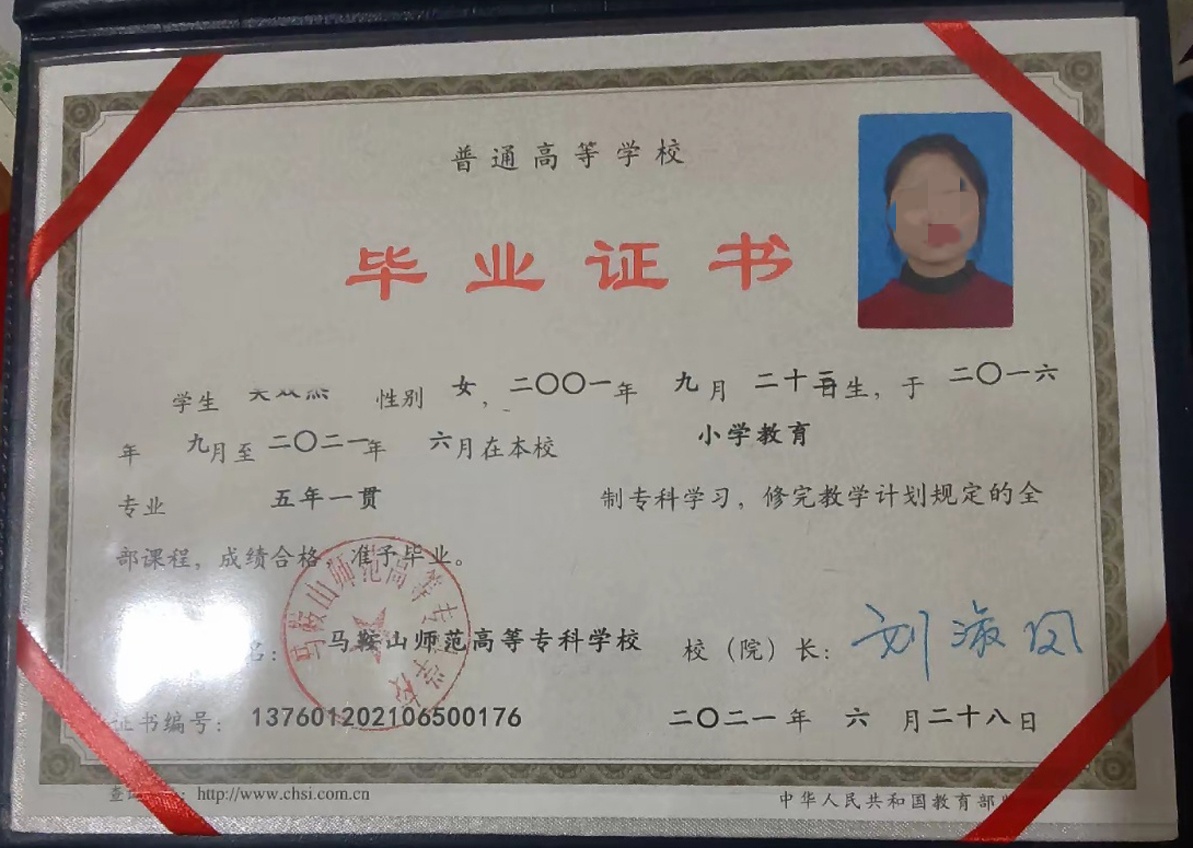 普通高等学校
毕业证书
学生 性别 女，二〇〇一年 九月 二十 日生，于 二〇一六
年 九月至二〇二一年 六月在本校 小学教育
专业 五年一贯 制专科学习，修完教学计划规定的全
部课程，成绩合格，准予毕业。
名： 马鞍山师范高等专科学校 校（院）长：刘淑凤
马鞍山师范高等专科学校
证书编号：137601202106500176 二〇二一年 六 月二十八日
查 ：http://www.chsi.com.cn 中华人民共和国教育部